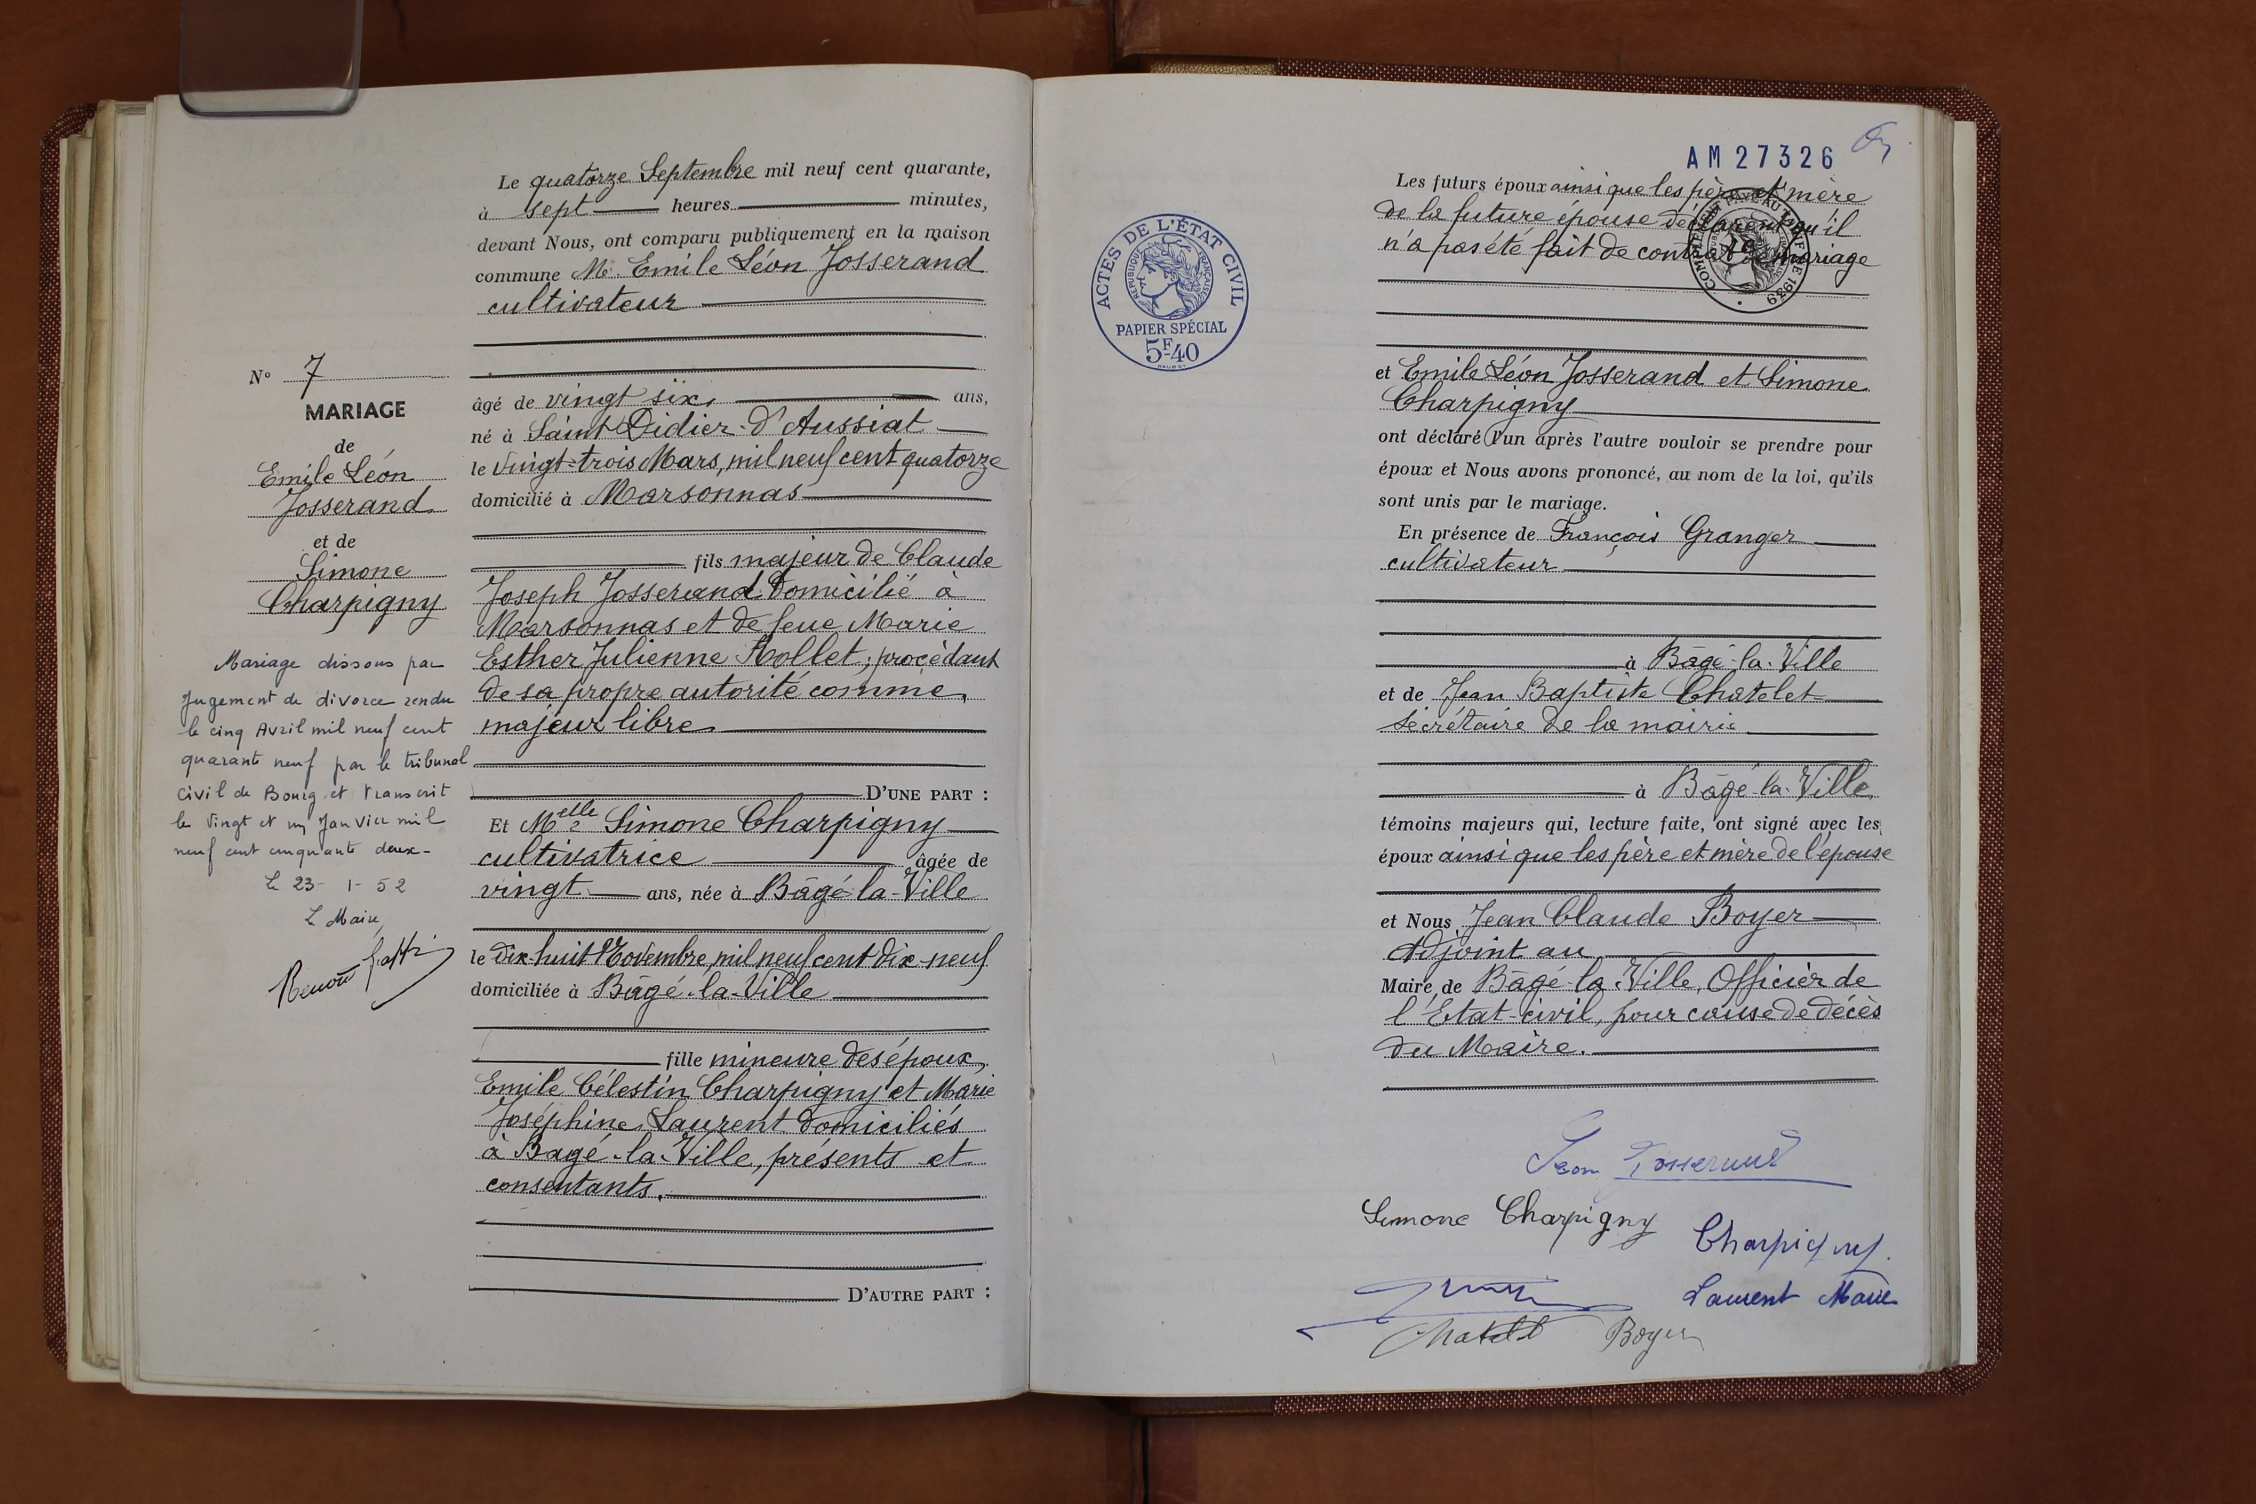 Le quatorze Septembre mil neuf cent quarante,
à sept heures minutes,
devant Nous, ont comparu publiquement en la maison
commune M. Emile Léon Josserand
cultivateur
N° 7
MARIAGE
de
Emile Léon
Josserand
et de
Simone
Charpigny
Mariage dissous par
Jugement de divorce rendu
le cinq Avril mil neuf cent
quarante neuf par le tribunal
civil de Bourg et transcrit
le vingt et un Janvier mil
neuf cent cinquante deux-
Le 23-1-52
Le Maire
âgé de vingt six ans,
né à Saint Didier-d'Aussiat
le vingt-trois Mars, mil neuf cent quatorze
domicilié à Marsonnas
fils majeur de Claude
Joseph Josserand domicilié à
Marsonnas et de feue Marie
Esther Julienne Rollet; procèdant
de sa propre autorité comme
majeur libre
D'UNE PART :
Et Melle Simone Charpigny
cultivatrice âgée de
vingt ans, née à Bâgé-la-Ville
le dix-huit Novembre, mil neuf cent dix-neuf
domiciliée à Bâgé-la-Ville
fille mineure des époux
Emile Célestin Charpigny et Marie
Joséphine Laurent domiciliés
à Bâgé-la-Ville, présents et
consentants.
D'AUTRE PART :
AM 27326
ACTES DE L'ÉTAT CIVIL
RÉPUBLIQUE FRANÇAISE
PAPIER SPÉCIAL
5F40
Les futurs époux ainsi que les père et mère
de la future épouse déclarent qu'il
n'a pas été fait de contrat de mariage
et Emile Léon Josserand et Simone
Charpigny
ont déclaré l'un après l'autre vouloir se prendre pour
époux et Nous avons prononcé, au nom de la loi, qu'ils
sont unis par le mariage.
En présence de François Granger
cultivateur
à Bâgé-la-Ville
et de Jean Baptiste Chatelet
sécrétaire de la mairie
à Bâgé-la-Ville
témoins majeurs qui, lecture faite, ont signé avec les
époux ainsi que les père et mère de l'épouse
et Nous Jean Claude Boyer
Adjoint au
Maire de Bâgé-la-Ville, Officier de
l'Etat-civil, pour cause de décès
du Maire.
Léon Josserand
Simone Charpigny
Charpigny
Laurent Marie
Chatelet
Boyer